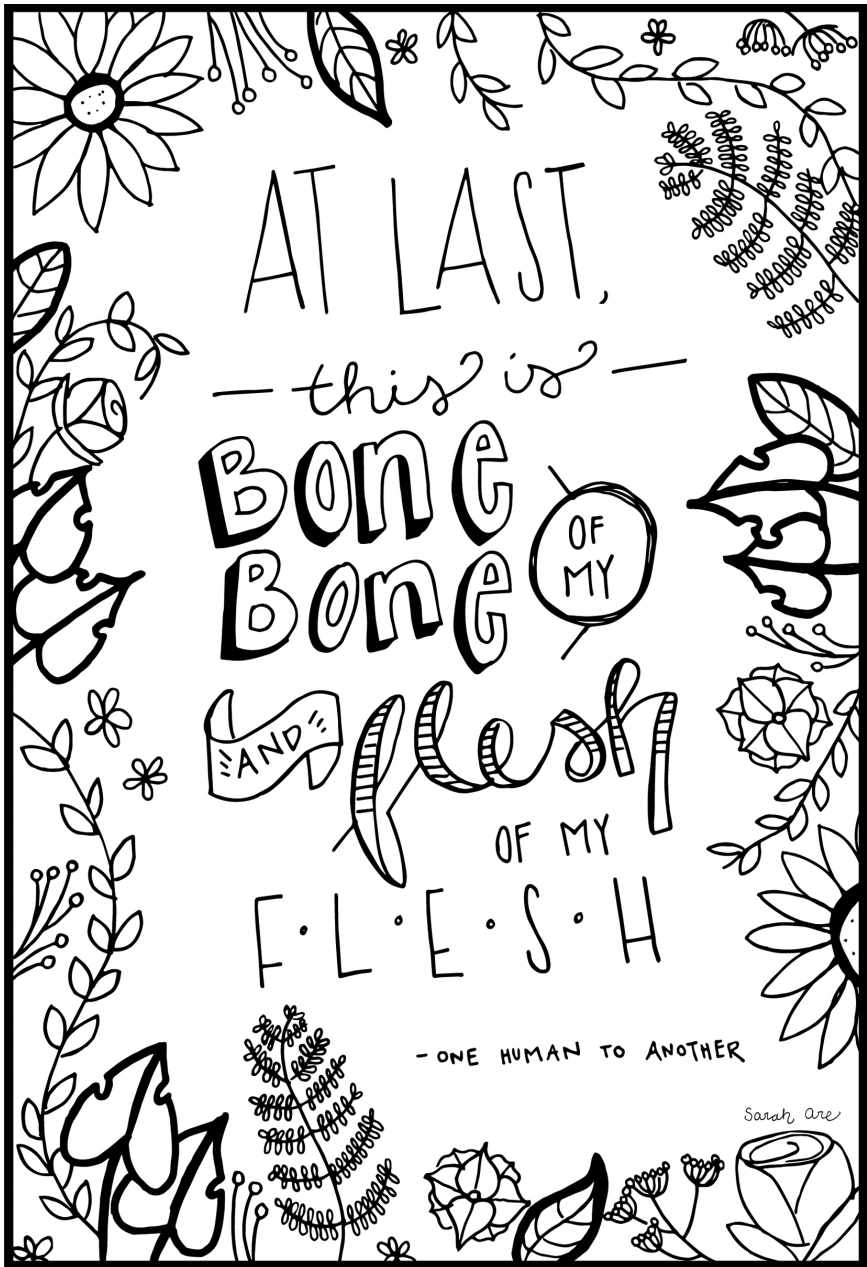 AT LAST,
— this is —
Bone
Bone OF MY
AND flesh
OF MY
F•L•E•S•H
- ONE HUMAN TO ANOTHER
Sarah Are